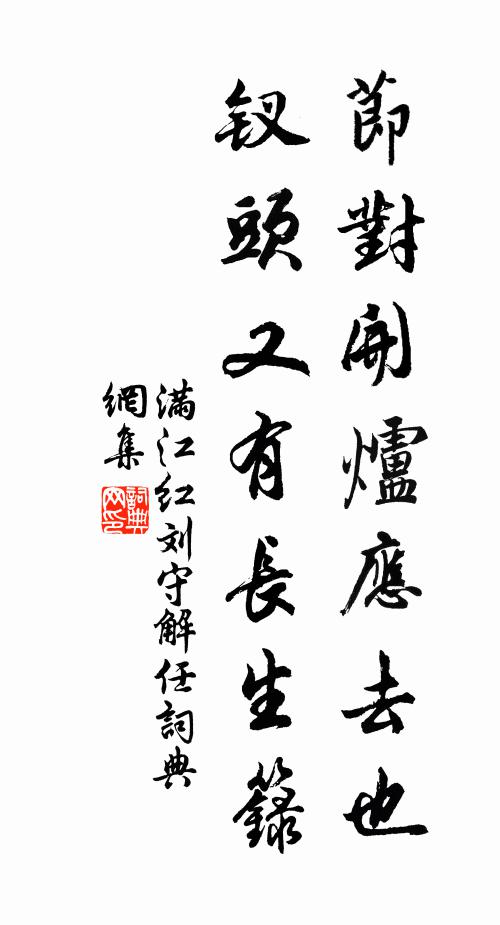 節對開爐應去也
釵頭又有長生籙
滿江红刘守解任詞典
網集
詞典网印